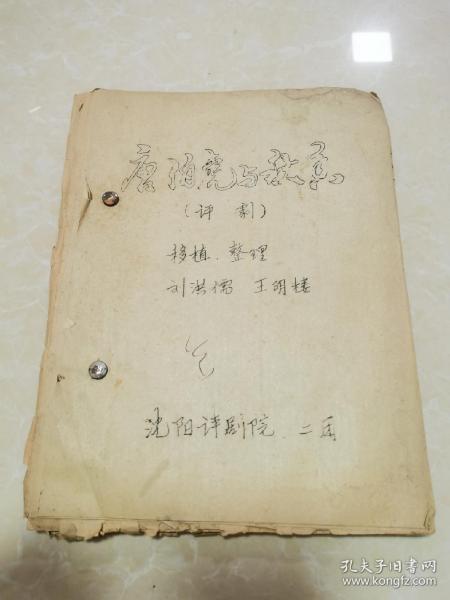 唐伯虎与秋香
(评剧)
移植.整理
刘洪儒 王明楼
沈阳评剧院.二团
孔夫子旧书网
www.kongfz.com